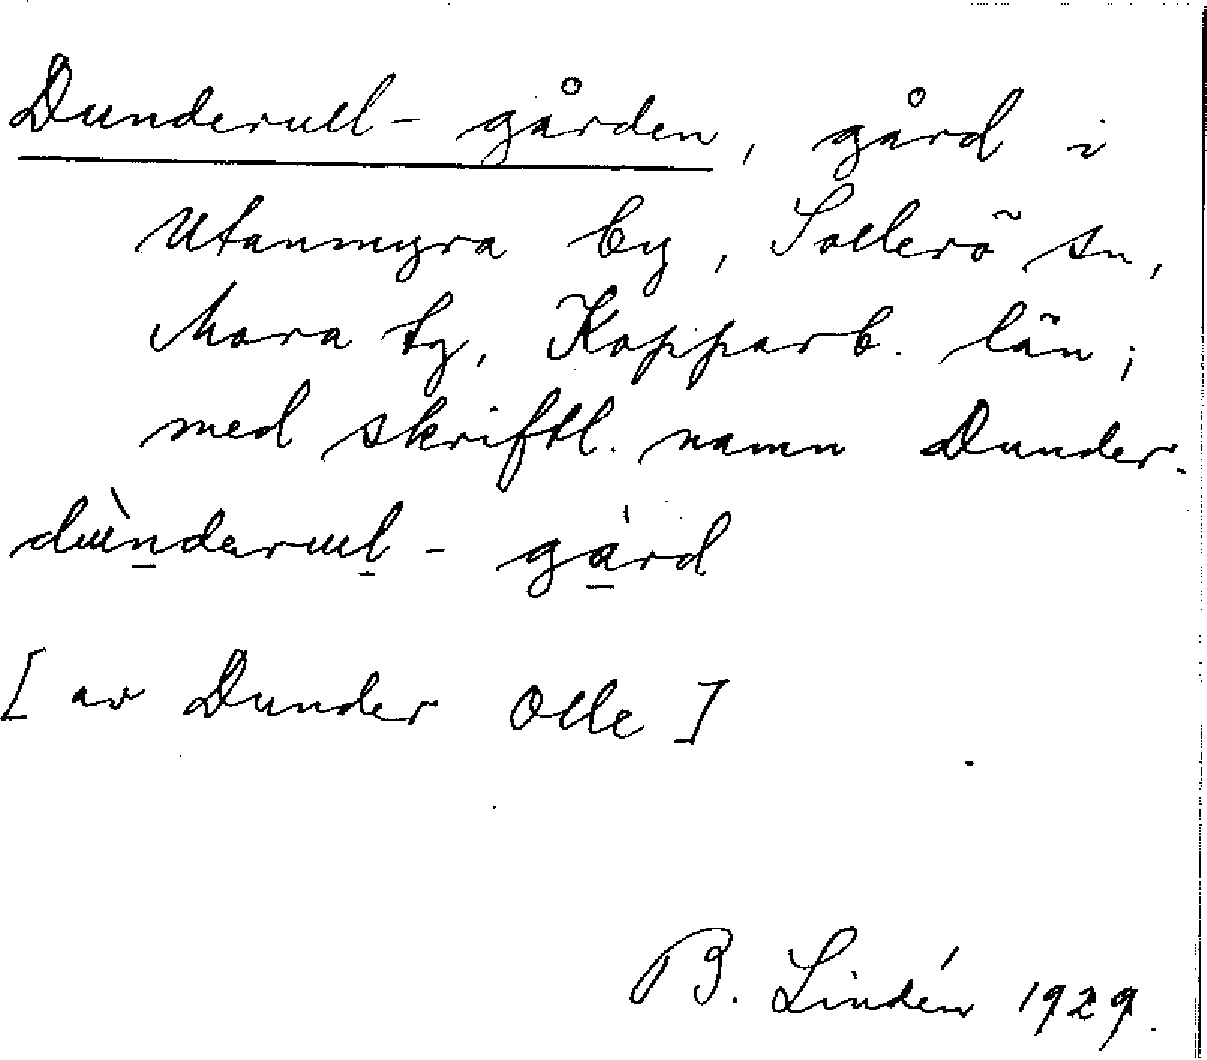 Dunderull-gården, gård i
Utanmyra by, Sollerö sn,
Mora tg, Kopparb. län;
med skriftl. namn Dunder.
dùnderul-gárd
[av Dunder Olle]
B. Lindén 1929.